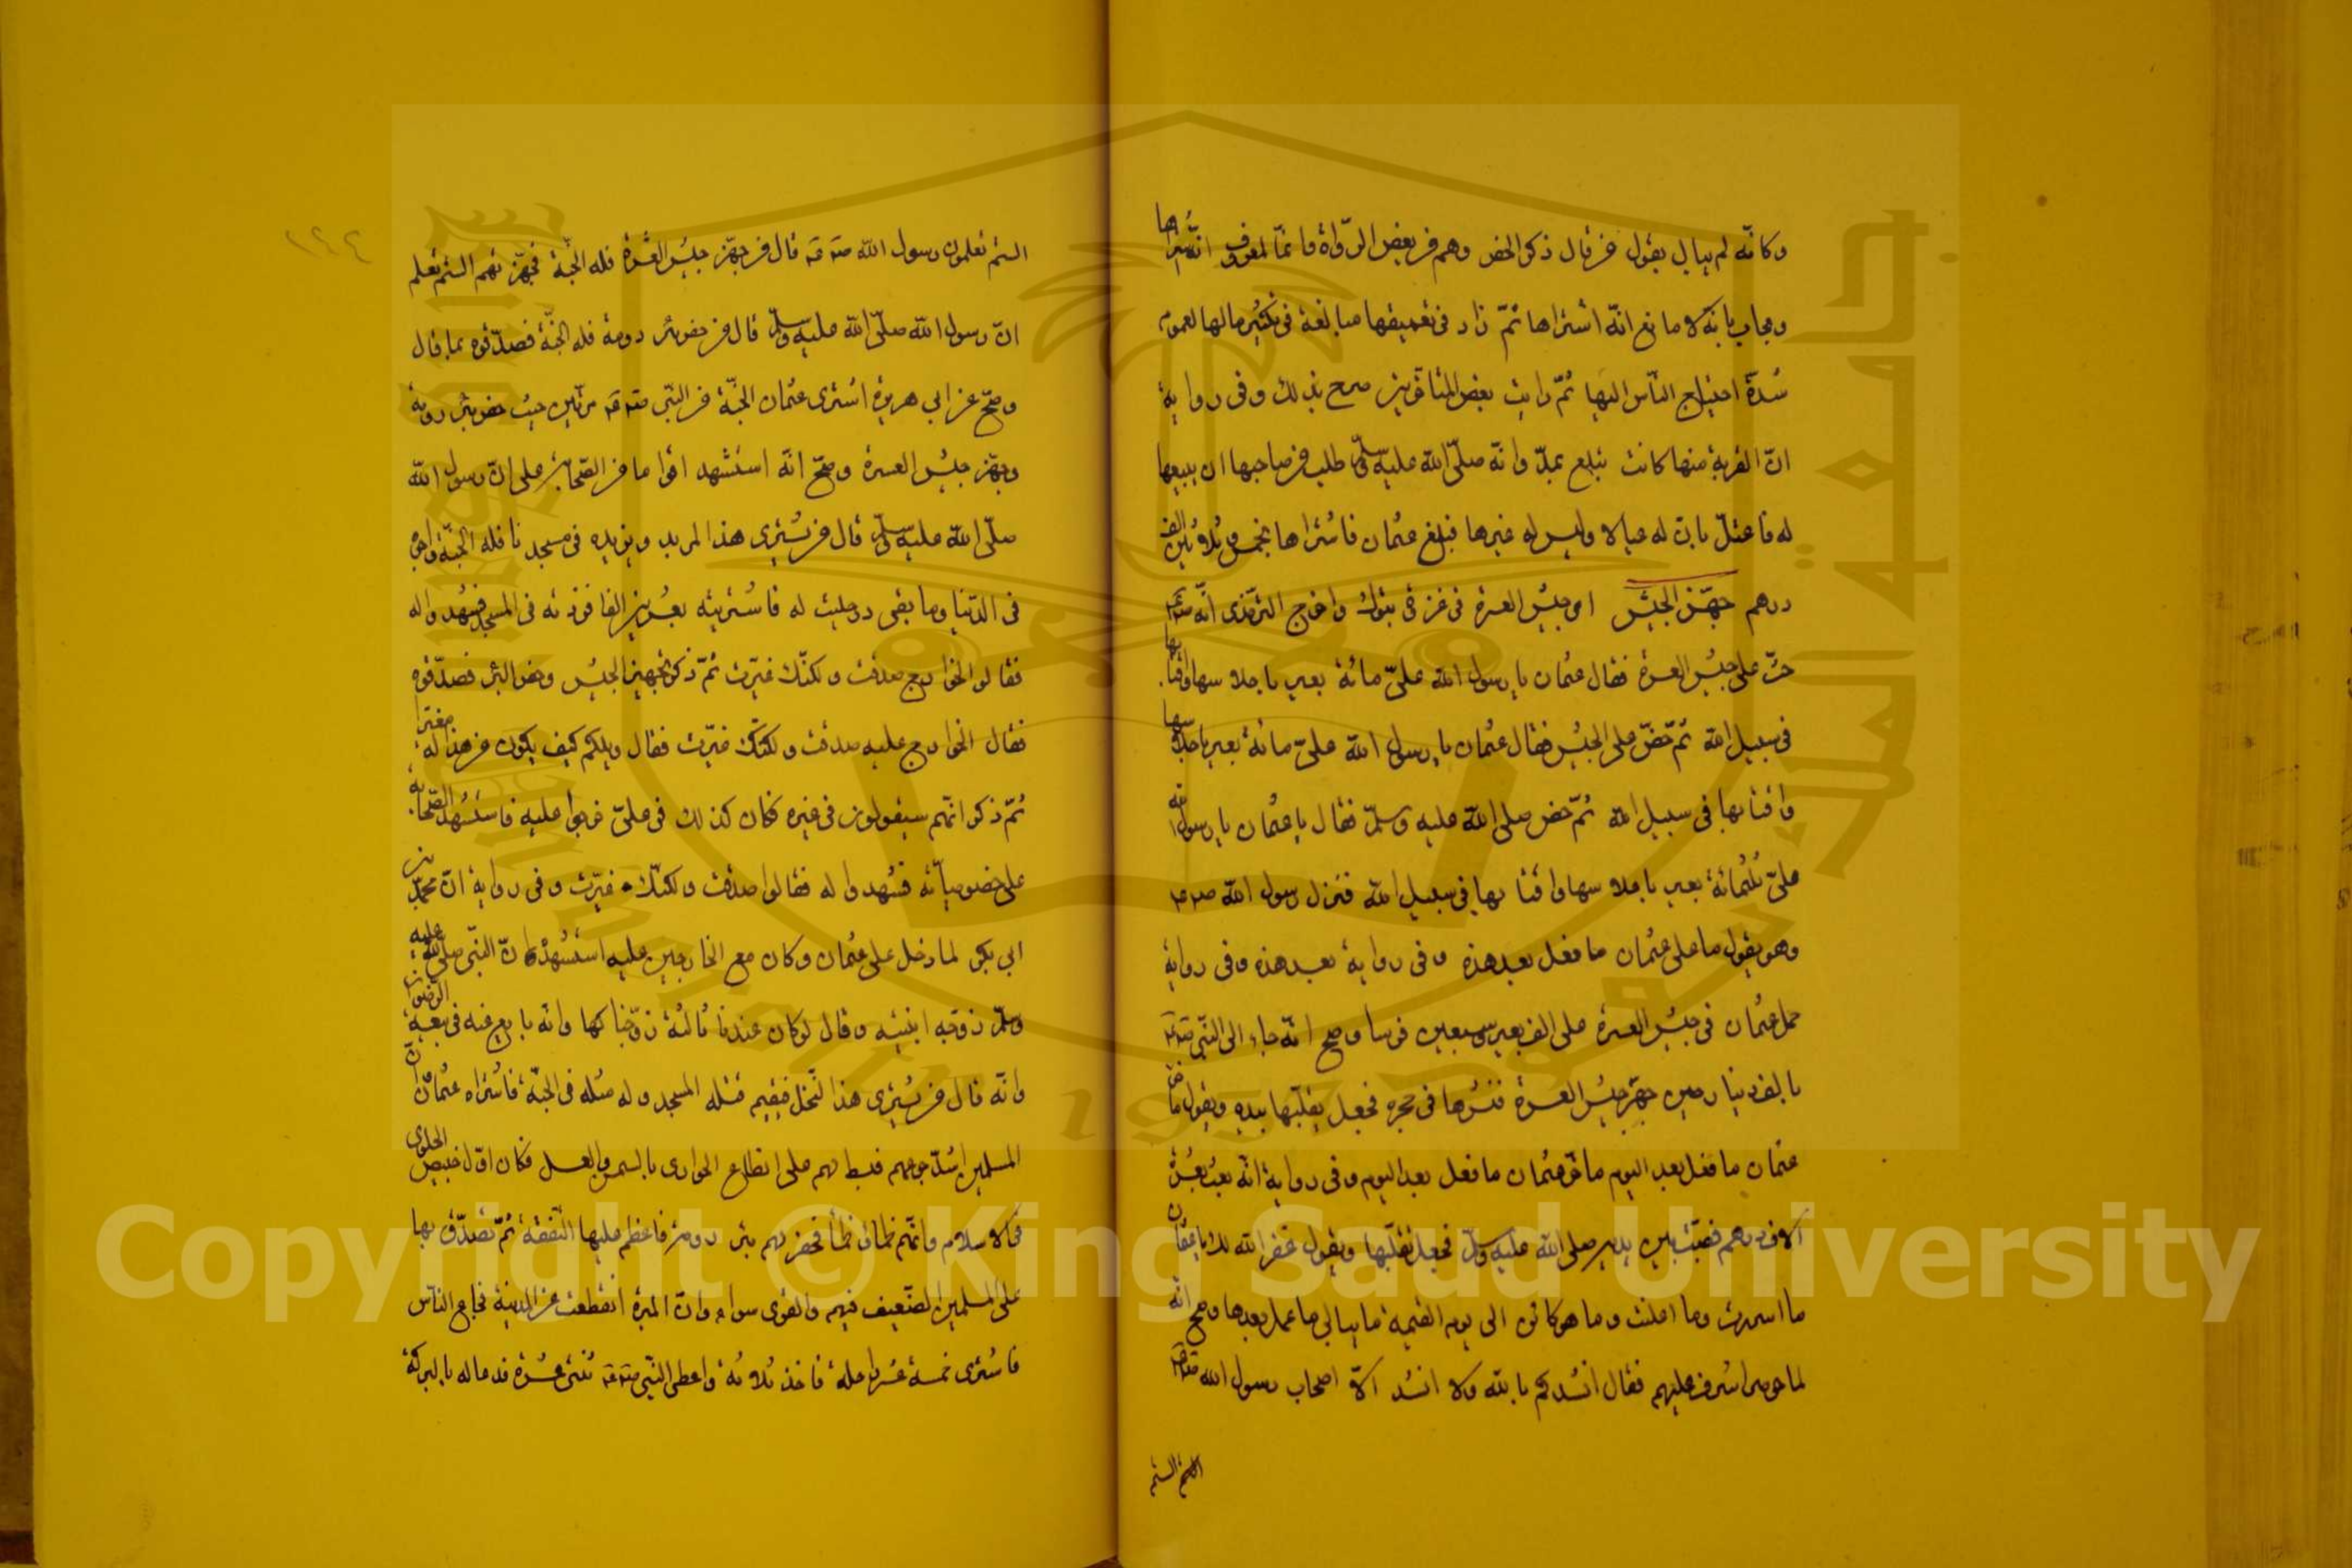 وكانه لم يبال بقول من قال ذكر الحفر وهم من بعض الرواة وانما المعروف انه اشتراها
ويجاب بانه لا مانع انه اشتراها ثم زاد في تعميقها مبالغة في تكثير مائها لعموم
شدة احتياج الناس اليها ثم رايت بعض المتاخرين صرح بذلك وفي رواية
ان القربة منها كانت تبلع بمد وانه صلى الله عليه وسلم طلب من صاحبها ان يبيعها
له فاعتل بان له عيالا وليس له غيرها فبلغ عثمان فاشتراها بخمس وثلاثين الف
درهم جهز الجيش اي جيش العسرة في غزوة تبوك واخرج الترمذي انه
حث على جيش العسرة فقال عثمان يا رسول الله علي مائة بعير باحلاسها واقتابها
في سبيل الله ثم حض على الجيش فقال عثمان يا رسول الله علي مائة بعير باحلاسها
واقتابها في سبيل الله ثم حض صلى الله عليه وسلم فقال يا عثمان يا رسول الله
علي ثلثمائة بعير باحلاسها واقتابها في سبيل الله فنزل رسول الله
وهو يقول ما على عثمان ما فعل بعد هذه وفي رواية بعد هذه وفي رواية
حمل عثمان في جيش العسرة على الف بعير وسبعين فرسا وصح انه جاء الى النبي
بالف دينار حين جهز جيش العسرة فنثرها في حجره فجعل يقلبها بيده ويقول ما ضر
عثمان ما فعل بعد اليوم ما ضر عثمان ما فعل بعد اليوم وفي رواية انه بعث بعشرة
الاف درهم فصبت بين يديه صلى الله عليه وسلم فجعل يقلبها ويقول غفر الله لك يا عثمان
ما اسررت وما اعلنت وما هو كائن الى يوم القيمة ما يبالي ما عمل بعدها وصح انه
لما حوصر اشرف عليهم فقال انشدكم بالله ولا انشد الا اصحاب رسول الله
الستم
١٤٤
الستم تعلمون رسول الله قال من جهز جيش العسرة فله الجنة فجهزتهم الستم تعلم
ان رسول الله صلى الله عليه وسلم قال من حفر بئر دومة فله الجنة فصدقوه بما قال
وصح عن ابي هريرة اشترى عثمان الجنة من النبي مرتين حيث حفر بئر رومة
وجهز جيش العسرة وصح انه استشهد اقواما من الصحابة على ان رسول الله
صلى الله عليه وسلم قال من يشتري هذا المربد ويزيده في مسجدنا فله الجنة واجره
في الدنيا وما بقي درجات له فاشتريته بعشرين الفا فزدته في المسجد فشهدوا له
فقالوا الخوارج صدقت ولكنك غيرت ثم ذكر تجهيز الجيش وحفر البئر فصدقوه
فقال الخوارج عليه صدقت ولكنك غيرت فقال ويلكم كيف يكون من هذا له مغيرا
ثم ذكر انهم سيقولون في غيره فكان كذلك في علي خرجوا عليه فاستشهد الصحابة
على خصوصياته فشهدوا له فقالوا صدقت ولكنك غيرت وفي رواية ان محمد بن
ابي بكر لما دخل على عثمان وكان مع الخارجين عليه استشهده ان النبي صلى الله عليه
وسلم زوجه ابنتيه وقال لو كان عندنا ثالثة زوجناكها وانه بايع عنه في بيعة الرضوان
وانه قال من يشتري هذا النخل فيقيم قبلة المسجد وله مثله في الجنة فاشتراه عثمان وان
المسلمين اشتد جوعهم فبسط لهم على انطاع الحوارى بالسمن والعسل فكان اول خبيص الحلوى
في الاسلام وانهم ظمئوا ظمأ فحفر لهم بئر رومة فاعظم عليها النفقة ثم تصدق بها
على المسلمين الضعيف فيهم والقوي سواء وان الميرة انقطعت عن المدينة فجاع الناس
فاشترى خمسة عشر راحلة فاخذ ثلاثة واعطى النبي اثنتي عشرة فدعا له بالبركة
Copyright © King Saud University
جامعة الملك سعود
King Saud University
1957